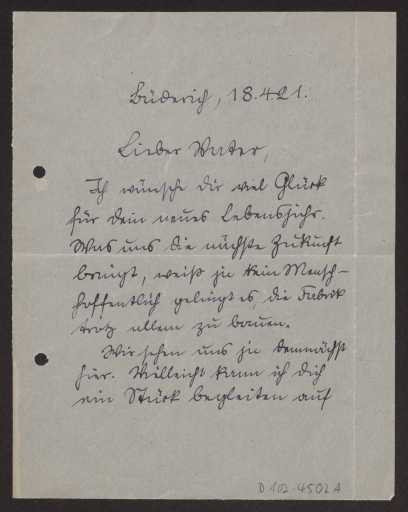 Büderich, 18.4.21.
Lieber Vater,
Ich wünsche dir viel Glück
für dein neues Lebensjahr.
Was uns die nächste Zukunft
bringt, weiß ja kein Mensch –
hoffentlich gelingt es, die Fabrik
trotz allem zu bauen.
Wir sehen uns ja demnächst
hier. Vielleicht kann ich dich
ein Stück begleiten auf
D 102-4502 A